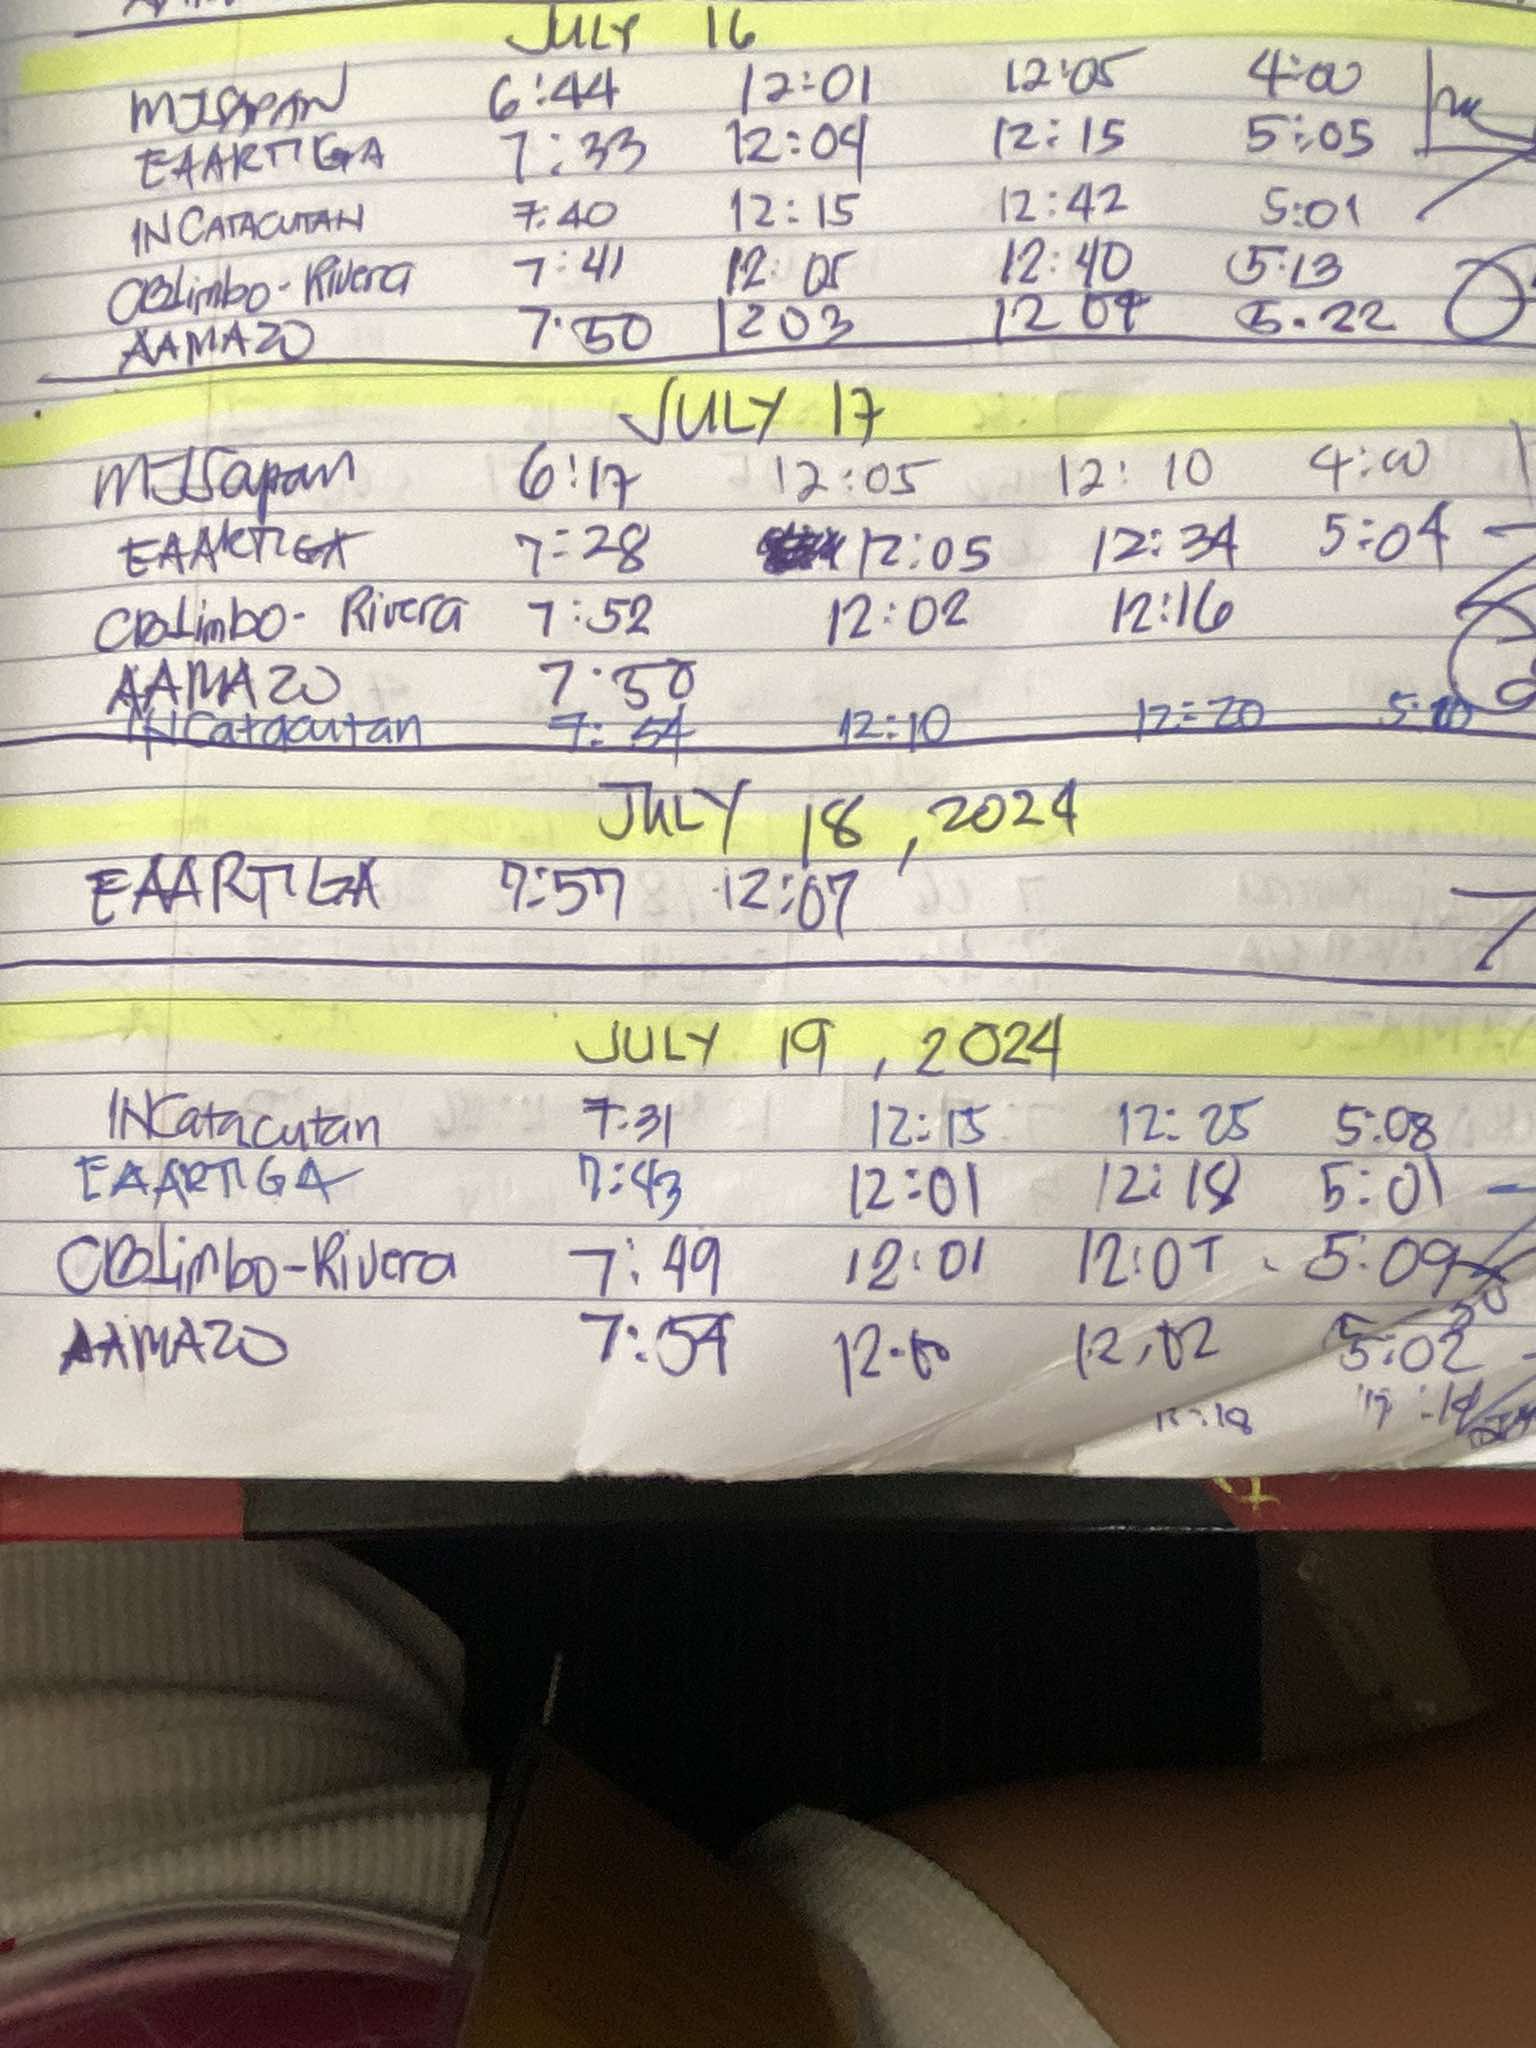 JULY 16
MJSAPAN 6:44 12:01 12:05 4:00
EAARTIGA 7:33 12:04 12:15 5:05
INCATACUTAN 7:40 12:15 12:42 5:01
CBLimbo-Rivera 7:41 12:05 12:40 5:13
AAMAZO 7:50 1203 12 04 5.22
JULY 17
MJSapan 6:17 12:05 12:10 4:00
EAARTIGA 7:28 12:05 12:34 5:04
CBLimbo-Rivera 7:52 12:02 12:16
AAMAZO 7:50
INCatacutan 7:54 12:10 12:20
JULY 18, 2024
EAARTIGA 7:57 12:07
JULY 19, 2024
INCatacutan 7:31 12:15 12:25 5:08
EAARTIGA 7:43 12:01 12:18 5:01
CBLimbo-Rivera 7:49 12:01 12:07 5:09
AAMAZO 7:54 12.00 12,02 5:02